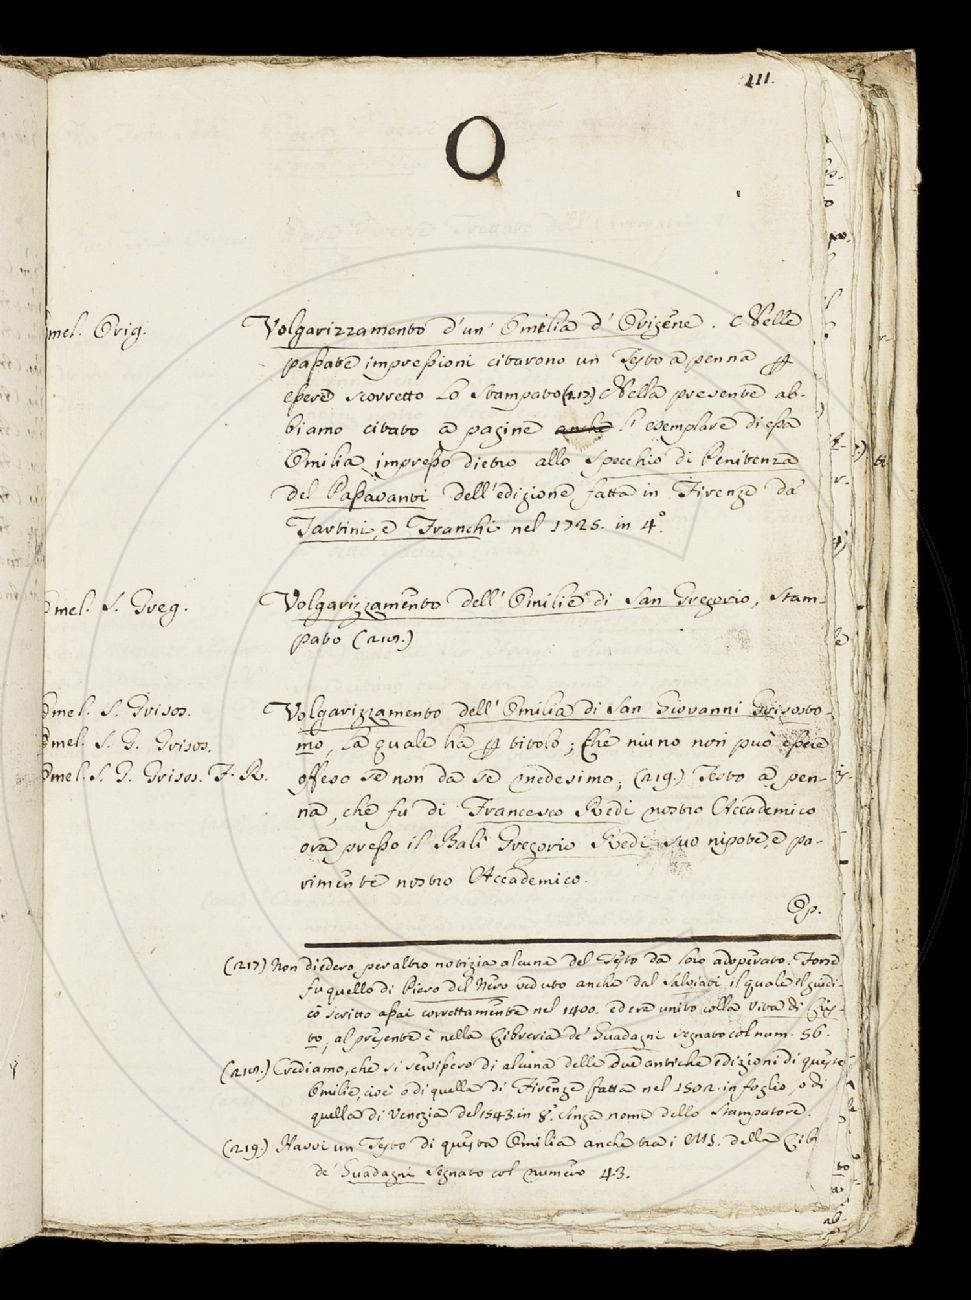 111.
O
Omel. Orig.
Volgarizzamento d'un' Omelia d' Origene. Nelle
passate impressioni citarono un Testo a penna p
essere scorretto lo Stampato (217) Nella presente ab-
biamo citato a pagine anche l'esemplare di essa
Omilia impresso dietro allo Specchio di Penitenza
del Passavanti dell'edizione fatta in Firenze da'
Tartini, e Franchi nel 1725. in 4°.
Omel. S. Greg.
Volgarizzamento dell' Omilie di San Gregorio, Stam-
pato (218.)
Omel. S. Grisos.
Omel. S. G. Grisos.
Omel. S. G. Grisos. F. R.
Volgarizzamento dell' Omilia di San Giovanni Grisosto-
mo, la quale ha p titolo; Che niuno non può essere
offeso se non da se medesimo; (219.) Testo a pen-
na, che fu di Francesco Redi nostro Accademico
ora presso il Balì Gregorio Redi suo nipote, e pa-
rimente nostro Accademico.
Op.
(217) Non diedero per altro notizia alcuna del Testo da loro adoperato. Forse
fu quello di Piero del Nero veduto anche dal Salviati il quale il giudi-
cò scritto assai correttamente nel 1400. ed era unito colla Vita di Cris-
to; al presente è nella Libreria de' Guadagni segnato col num. 56.
(218.) Crediamo, che si servissero di alcuna delle due antiche edizioni di queste
Omilie, cioè o di quella di Firenze fatta nel 1502. in foglio, o di
quella di Venezia del 1543. in 8°. senza nome dello Stampatore.
(219.) Havvi un Testo di questa Omilia anche tra i MS. della Lib
de' Guadagni segnato col numero 43.